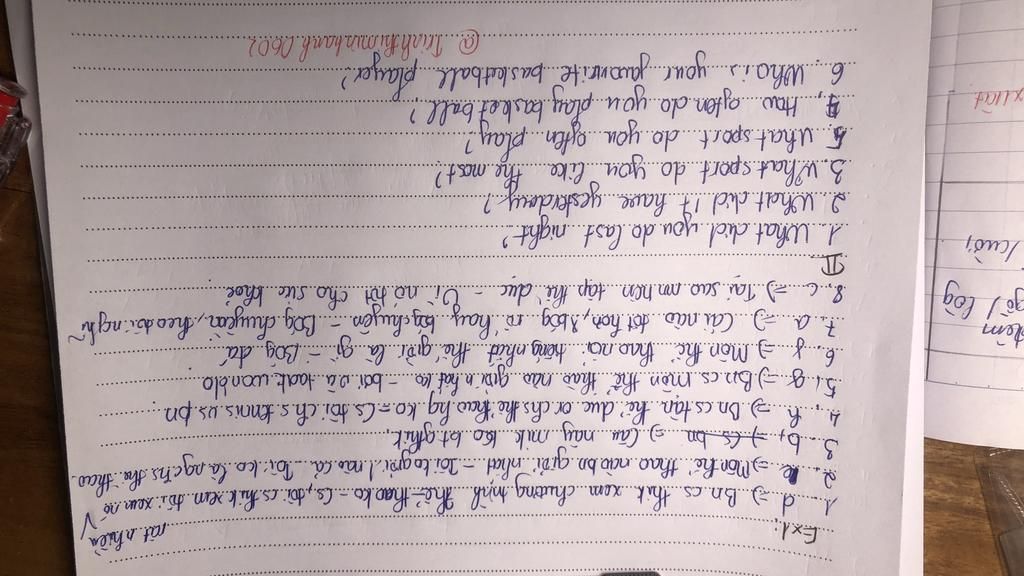 Ex1:
rất nhiều
1. d => Bn cs thik xem chương trình thể thao ko - Cs, tôi cs thik xem tôi xem nó
2. e => Môn thể thao nào bn giỏi nhất - Tôi ko giỏi 1 nào cả. Tôi ko là ng chs thể thao
3. b, => Cs bn => Câu này mik ko bt ghik,
4. h => Bn cs tập thể dục or chs thể thao hg ko - Cs tôi chs tennis vs bn
5. g => Bn cs môn thể thao nào giỏi nhất ko - bơi và taekwondo
6. f => Môn thể thao nổi tiếng nhất thế giới là gì - Bóng đá
7. a => Cái nào tốt hơn, bóng rổ hay bóng chuyền - Bóng chuyền, theo tôi nghĩ
8. c => Tại sao mn nên tập thể dục - Vì nó tốt cho sức khoẻ
II
1. What did you do last night?
2. What did it have yesterday?
3. What sport do you like the most?
5. What sport do you often play?
4, How often do you play basketball,?
6. Who is your favourite basketball player?
@Trinhthiminhanh0602
xuất
cuối,
điểm